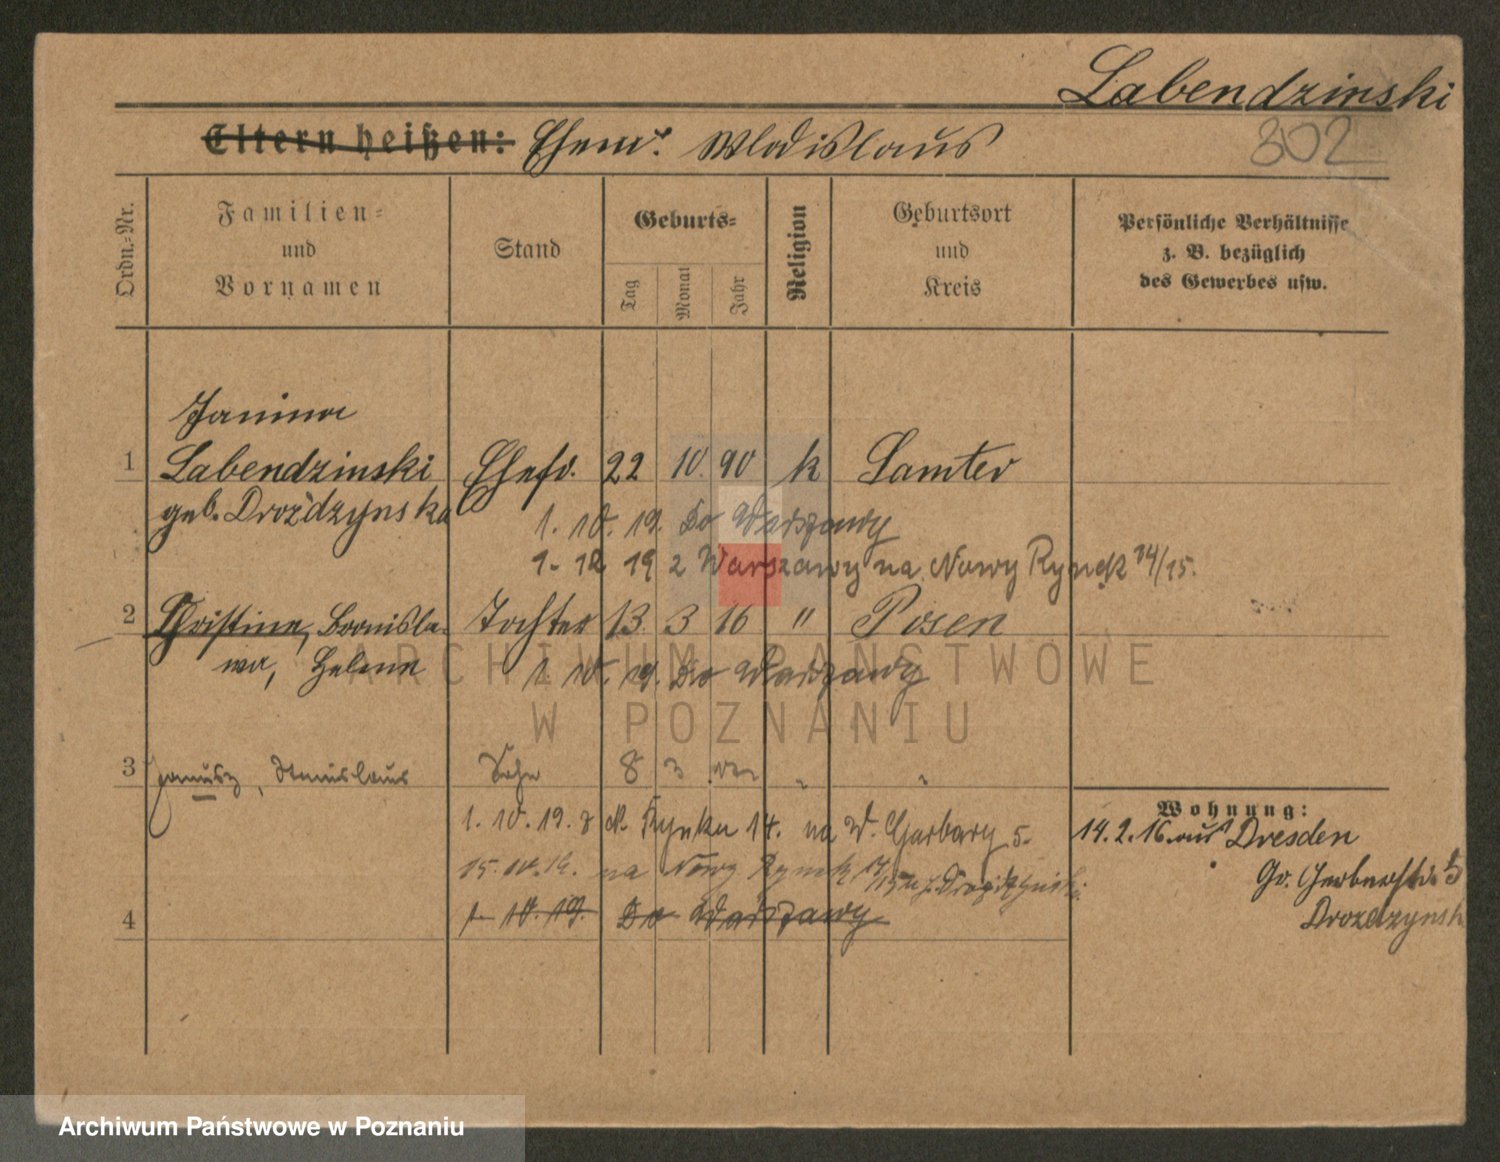 Labendzinski
Eltern heißen: Ehem. Wladislaus
302
Ordn.-Nr.
Familien-
und
Vornamen
Stand
Geburts-
Tag
Monat
Jahr
Religion
Geburtsort
und
Kreis
Persönliche Verhältnisse
z. B. bezüglich
des Gewerbes usw.
Janina
1 Labendzinski Ehefr. 22 10. 90 k Samter
geb. Droździynska
1. 10. 19. Do Warszawy
1. 12 19 z Warszawy na Nowy Rynek 14/15.
2 Christine, Bronisla- Tochter 13. 3 16 " Posen
wa, Helene
1. 10. 19. Do Warszawy
3 Janusz, Stanislaus Sohn 8 3 " "
Wohnung:
1. 10. 19. z N. Rynku 14. na W. Garbary 5.
14. 2. 16. aus Dresden
15. 10. 19. na Nowy Rynek
Gr. Gerberstr. 5
4 1. 10. 19. Do Warszawy
Drozdzynsk
ARCHIWUM PAŃSTWOWE
W POZNANIU
Archiwum Państwowe w Poznaniu